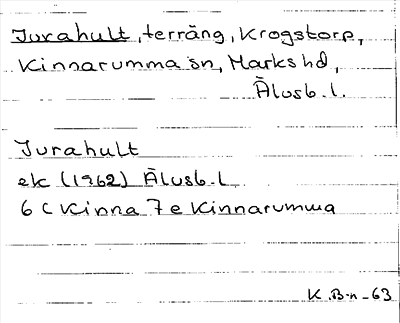 Jurahult, terräng, Krogstorp,
Kinnarumma sn, Marks hd,
Älvsb. l.
Jurahult
ek (1962) Älvsb. l
6 C Kinna 7 e Kinnarumma
K. B-n -63